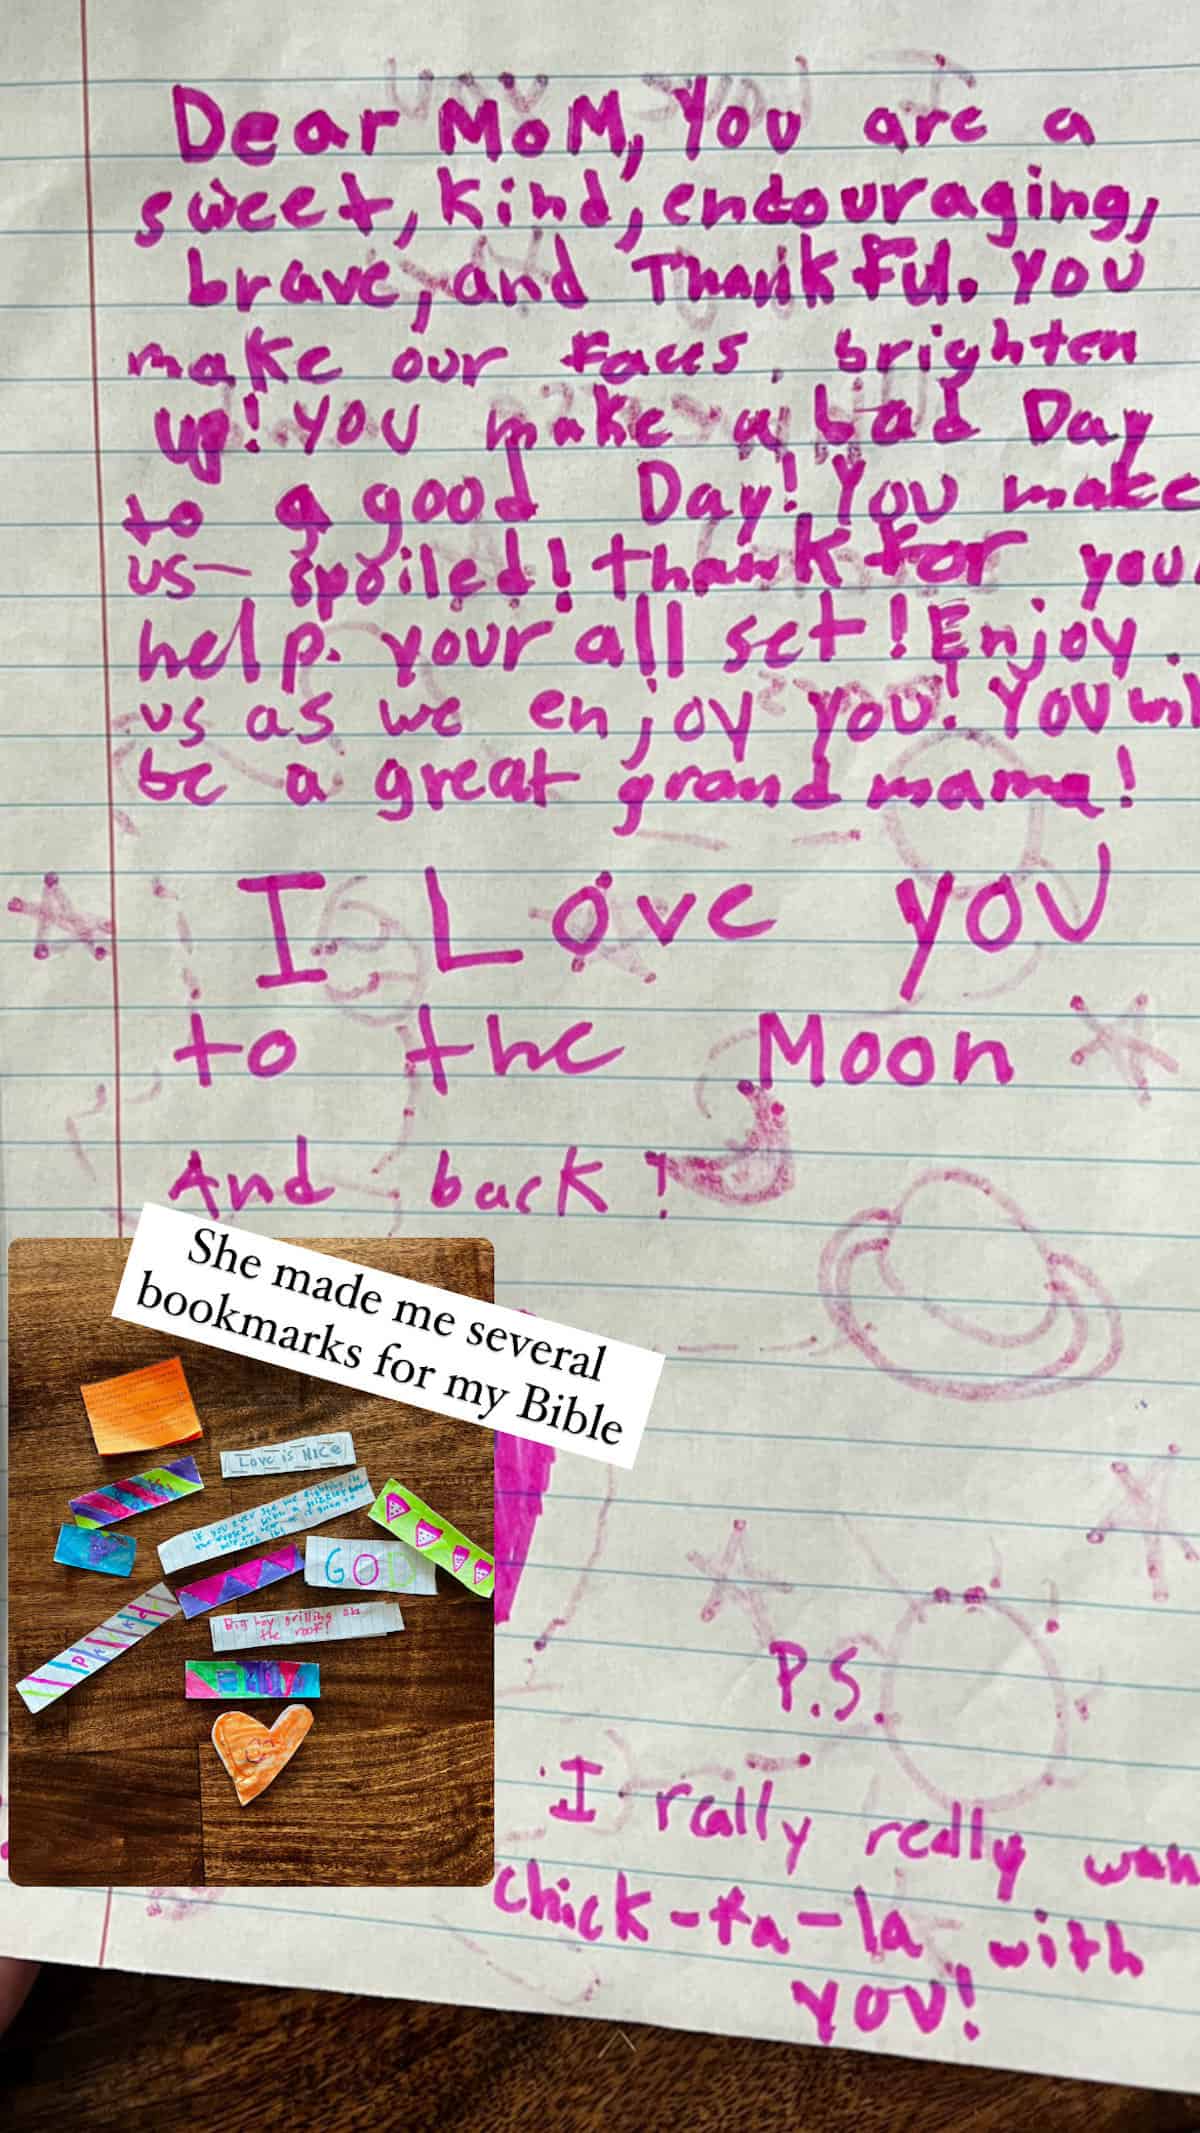 Dear MoM, You are a
sweet, kind, encouraging,
brave, and Thankful. You
make our faces brighten
up! You make a bad Day
to a good Day! You make
us- spoiled! thank for your
help. your all set! Enjoy
us as we enjoy you! You wil
be a great grand mama!
I Love you
to the Moon
And back!
She made me several
bookmarks for my Bible
Love is Nice
if you ever see me fighting in
the forest with a grizzly bear
GOD
Big boy grilling on
the roof!
P.S.
I really really wan
Chick-fa-la with
you!